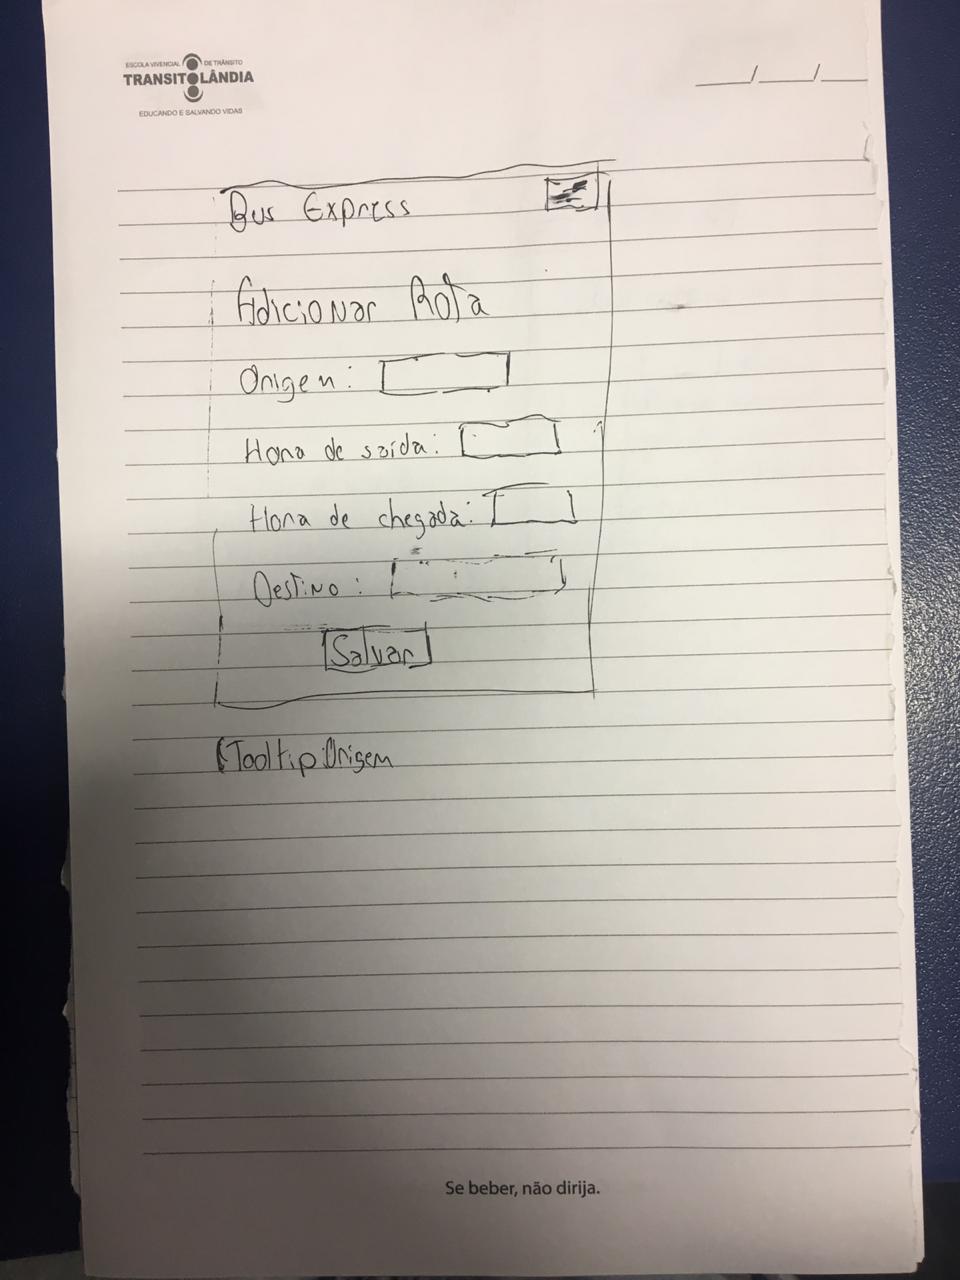 ESCOLA VIVENCIAL DE TRÂNSITO
TRANSITOLÂNDIA
EDUCANDO E SALVANDO VIDAS
___/___/___
Bus Express
Adicionar Rota
Origem:
Hora de saída:
Hora de chegada:
Destino:
Salvar
(Tooltip Origem
Se beber, não dirija.